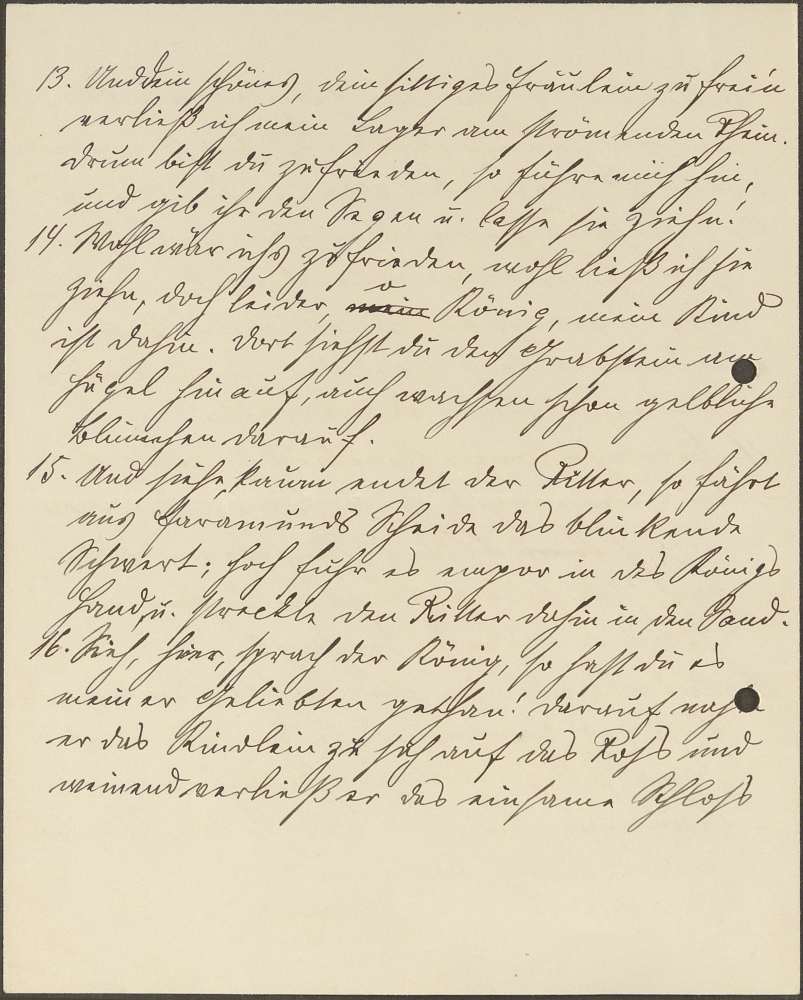 13. Und dein schönes, dein sittiges Fräulein zu frei'n
verließ ich mein Lager am strömenden Rhein.
Drum bist du zufrieden, so führe mich hin,
und gib ihr den Segen u. lasse sie ziehn!
14. Wohl wär ichs zufrieden, wohl ließ ich sie
ziehn, doch leider, o König, mein Kind
ist dahin. Dort siehst du den Grabstein am
Hügel hinauf, auch wachsen schon gelbliche
Blümchen darauf.
15. Und siehe, kaum endet der Ritter, so fährt
aus Faramunds Scheide das blinkende
Schwert; hoch fuhr es empor in des Königs
Hand, u. streckte den Ritter dahin in den Sand.
16. Sieh, hier, sprach der König, so hast du es
meiner Geliebten gethan! Darauf nahm
er das Kindlein zu sich auf das Roß und
weinend verließ er das einsame Schloß